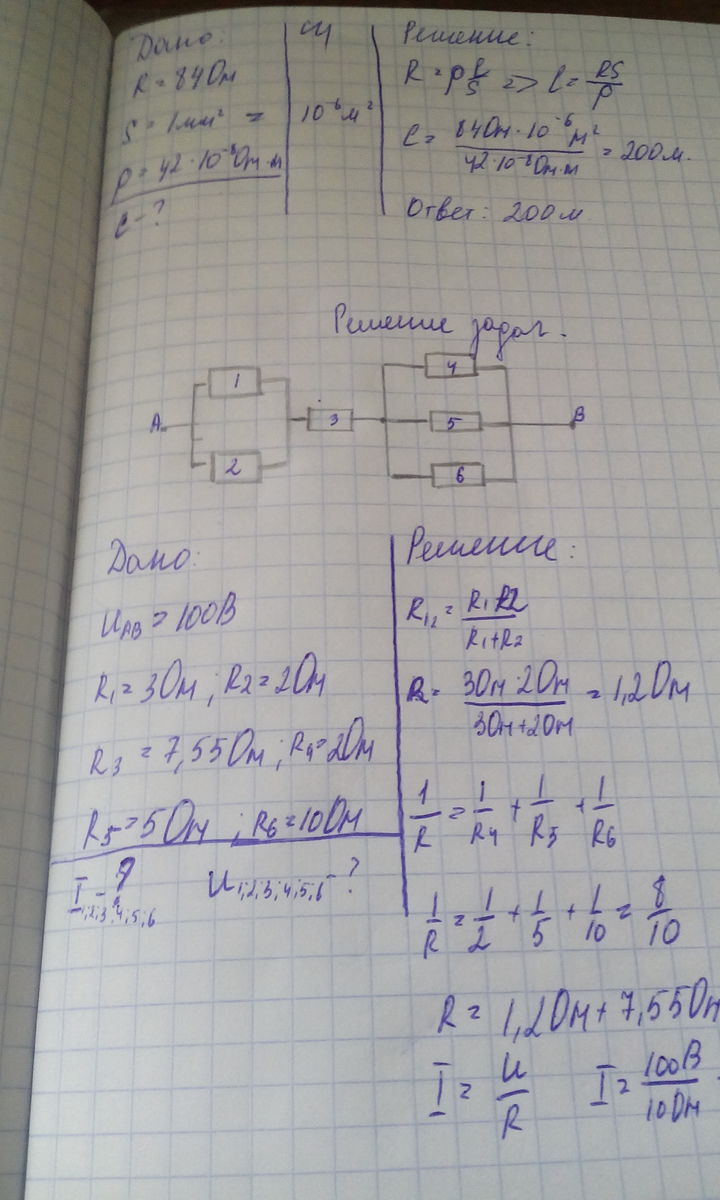 Дано:
R = 84 Ом
S = 1 мм² =
ρ = 42·10⁻⁸ Ом·м
ℓ - ?
СИ
10⁻⁶ м²
Решение:
R = ρ ℓ/S => ℓ = RS/ρ
ℓ = 84 Ом · 10⁻⁶ м² / 42·10⁻⁸ Ом·м = 200 м.
Ответ: 200 м.
Решение задач.
A
1
2
3
4
5
6
B
Дано:
U_AB = 100 В
R₁ = 3 Ом ; R₂ = 2 Ом
R₃ = 7,55 Ом ; R₄ = 2 Ом
R₅ = 5 Ом ; R₆ = 10 Ом
I₁;₂;₃;₄;₅;₆ - ? U₁;₂;₃;₄;₅;₆ - ?
Решение:
R₁₂ = R₁ R₂ / R₁ + R₂
R = 3 Ом · 2 Ом / 3 Ом + 2 Ом = 1,2 Ом
1/R = 1/R₄ + 1/R₅ + 1/R₆
1/R = 1/2 + 1/5 + 1/10 = 8/10
R = 1,2 Ом + 7,55 Ом
I = U/R I = 100 В / 10 Ом